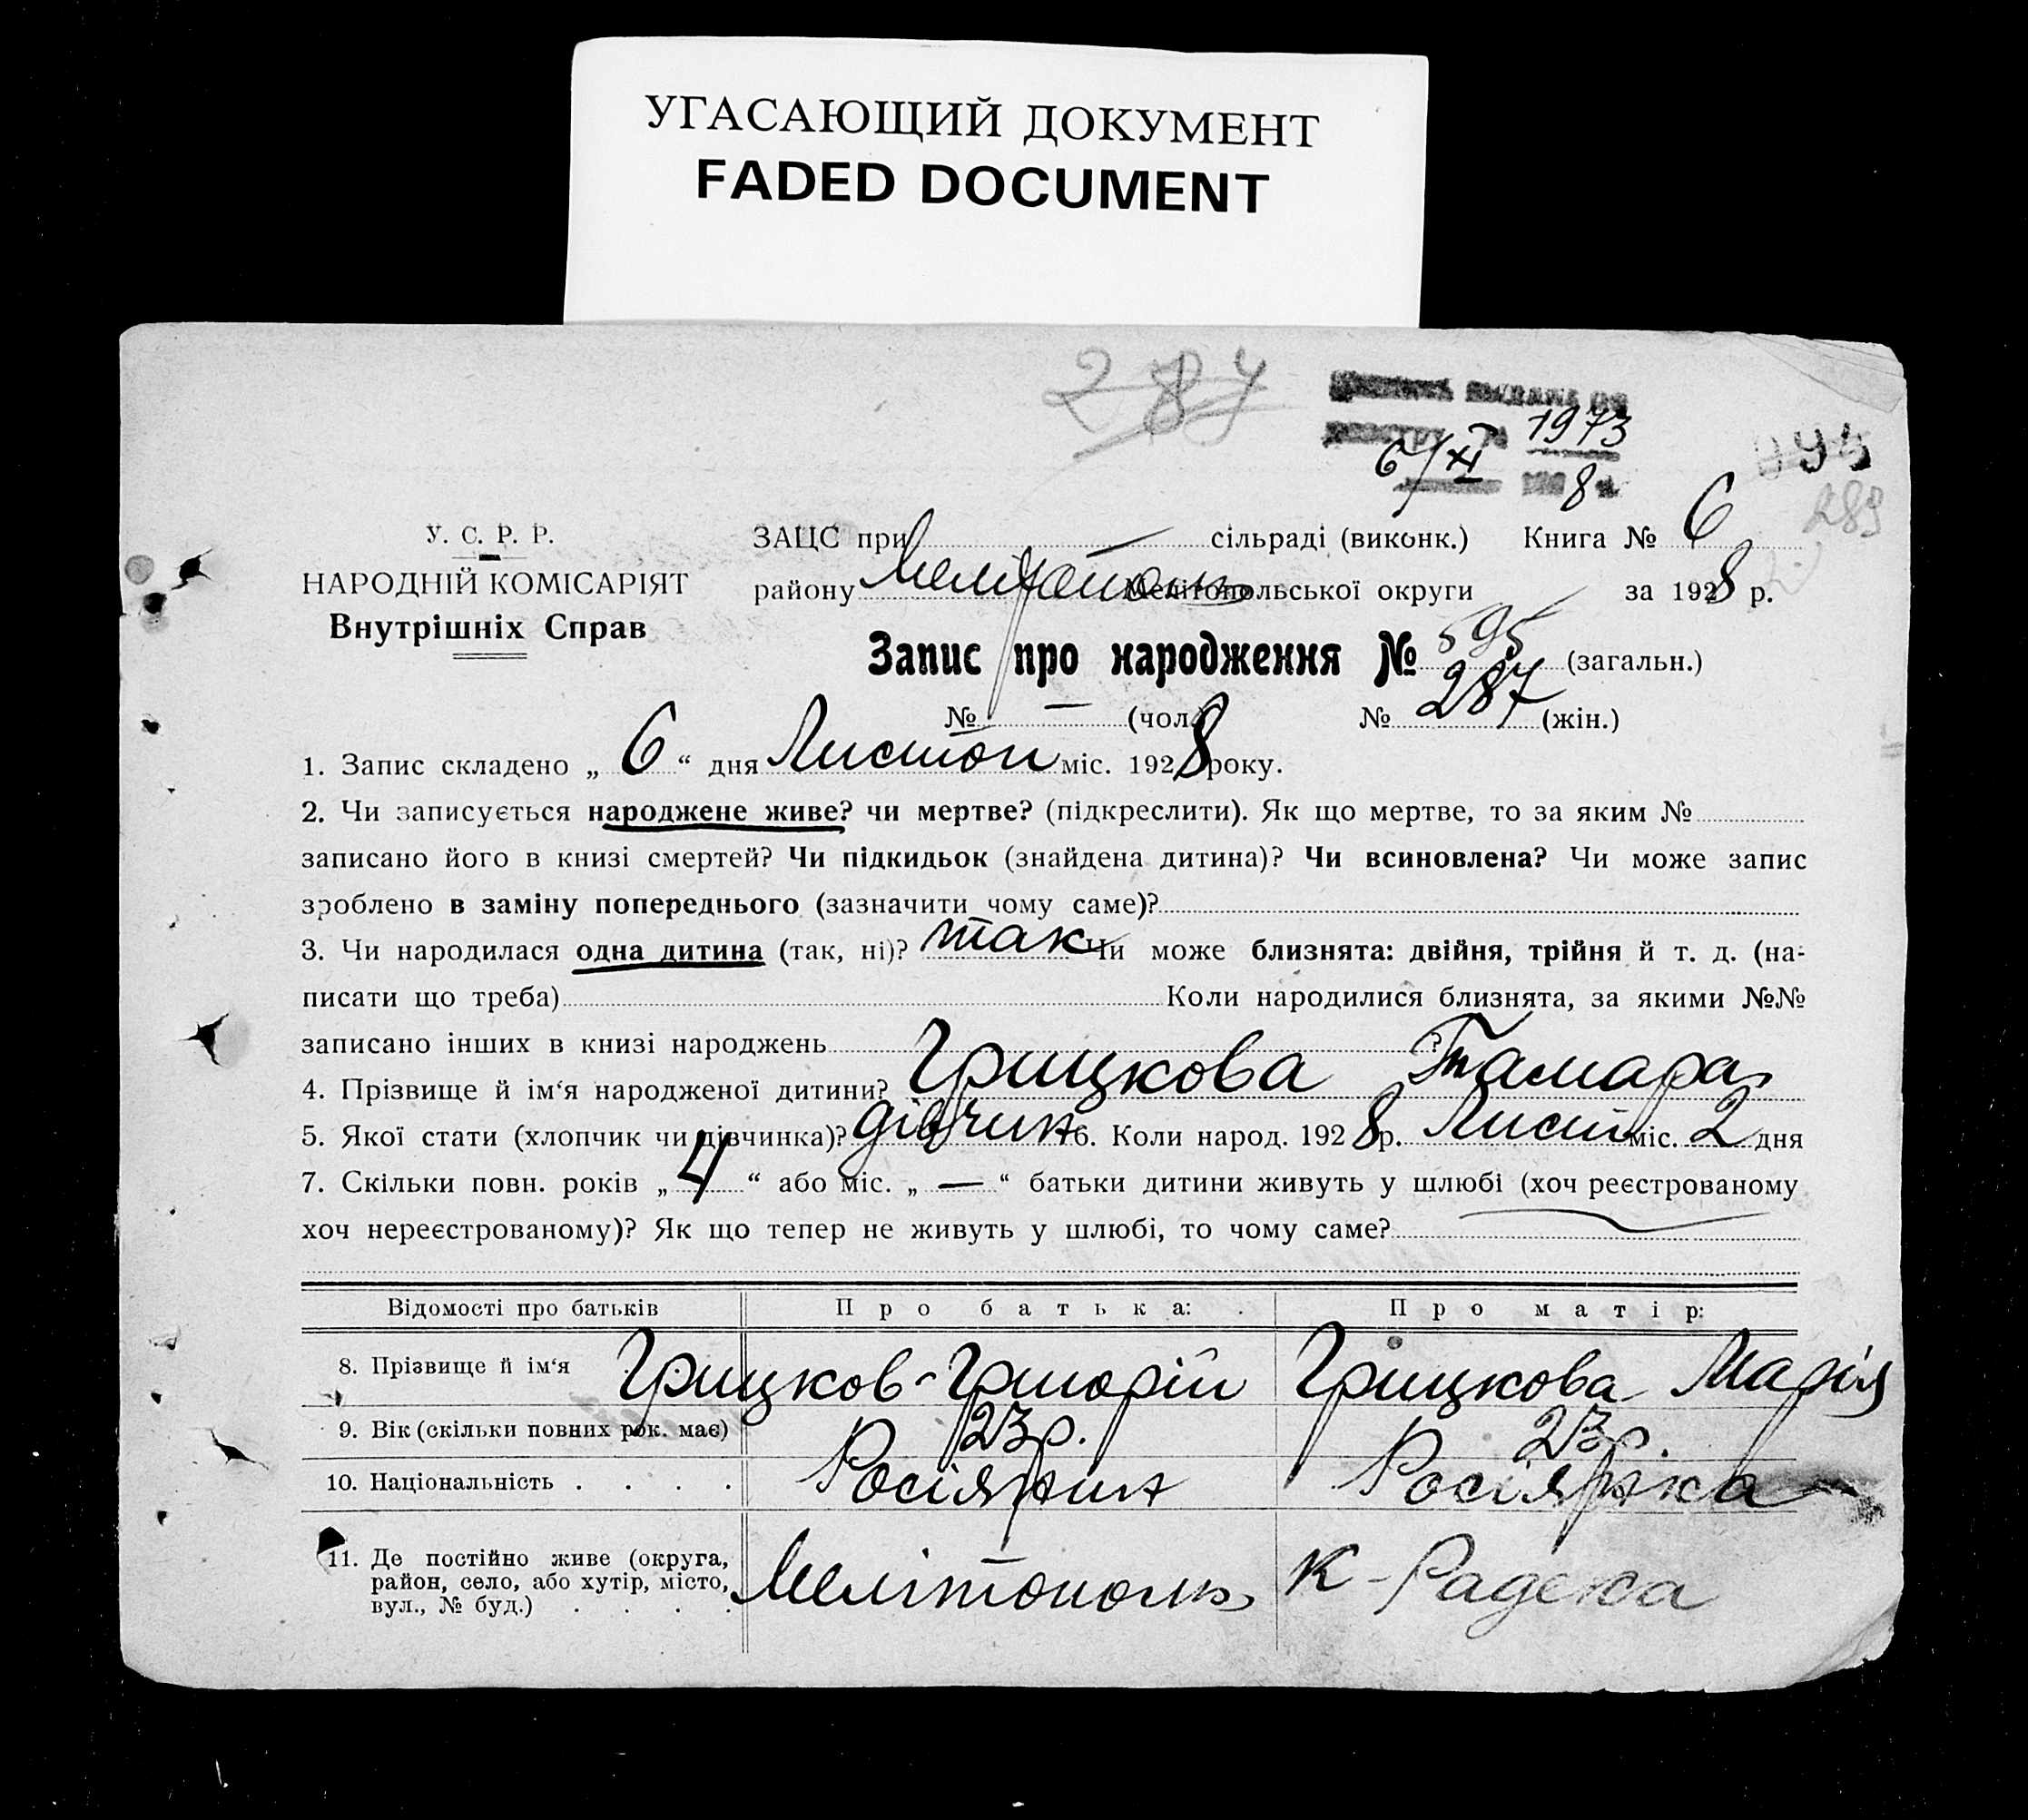 УГАСАЮЩИЙ ДОКУМЕНТ
FADED DOCUMENT
287
1973
6/XI 8
289
У. С. Р. Р.
НАРОДНІЙ КОМІСАРІЯТ
Внутрішніх Справ
ЗАЦС при — сільраді (виконк.) Книга № 6
району Мелітополь Мелітопольської округи за 1928 р.
Запис про народження № 595 (загальн.)
№ — (чол.) № 287 (жін.)
1. Запис складено „ 6 “ дня Листоп міс. 1928 року.
2. Чи записується народжене живе? чи мертве? (підкреслити). Як що мертве, то за яким №
записано його в книзі смертей? Чи підкидьок (знайдена дитина)? Чи всиновлена? Чи може запис
зроблено в заміну попереднього (зазначити чому саме)?
3. Чи народилася одна дитина (так, ні)? так Чи може близнята: двійня, трійня й т. д. (на-
писати що треба) Коли народилися близнята, за якими №№
записано інших в книзі народжень ?
4. Прізвище й ім‘я народженої дитини? Грицкова Тамара
5. Якої стати (хлопчик чи дівчинка)? дівчин 6. Коли народ. 1928 р. Лист міс. 2 дня
7. Скільки повн. років „ 4 “ або міс. „ — “ батьки дитини живуть у шлюбі (хоч реєстрованому
хоч нереєстрованому)? Як що тепер не живуть у шлюбі, то чому саме?
Відомості про батьків Про батька: Про матір:
8. Прізвище й ім‘я Грицков-Григорій Грицкова Марія
9. Вік (скільки повних рок. має) 23 р. 23 р.
10. Національність . . . . Росіянин Росіянка
11. Де постійно живе (округа,
район, село, або хутір, місто, Мелітополь К-Радека
вул., № буд.) . . . .